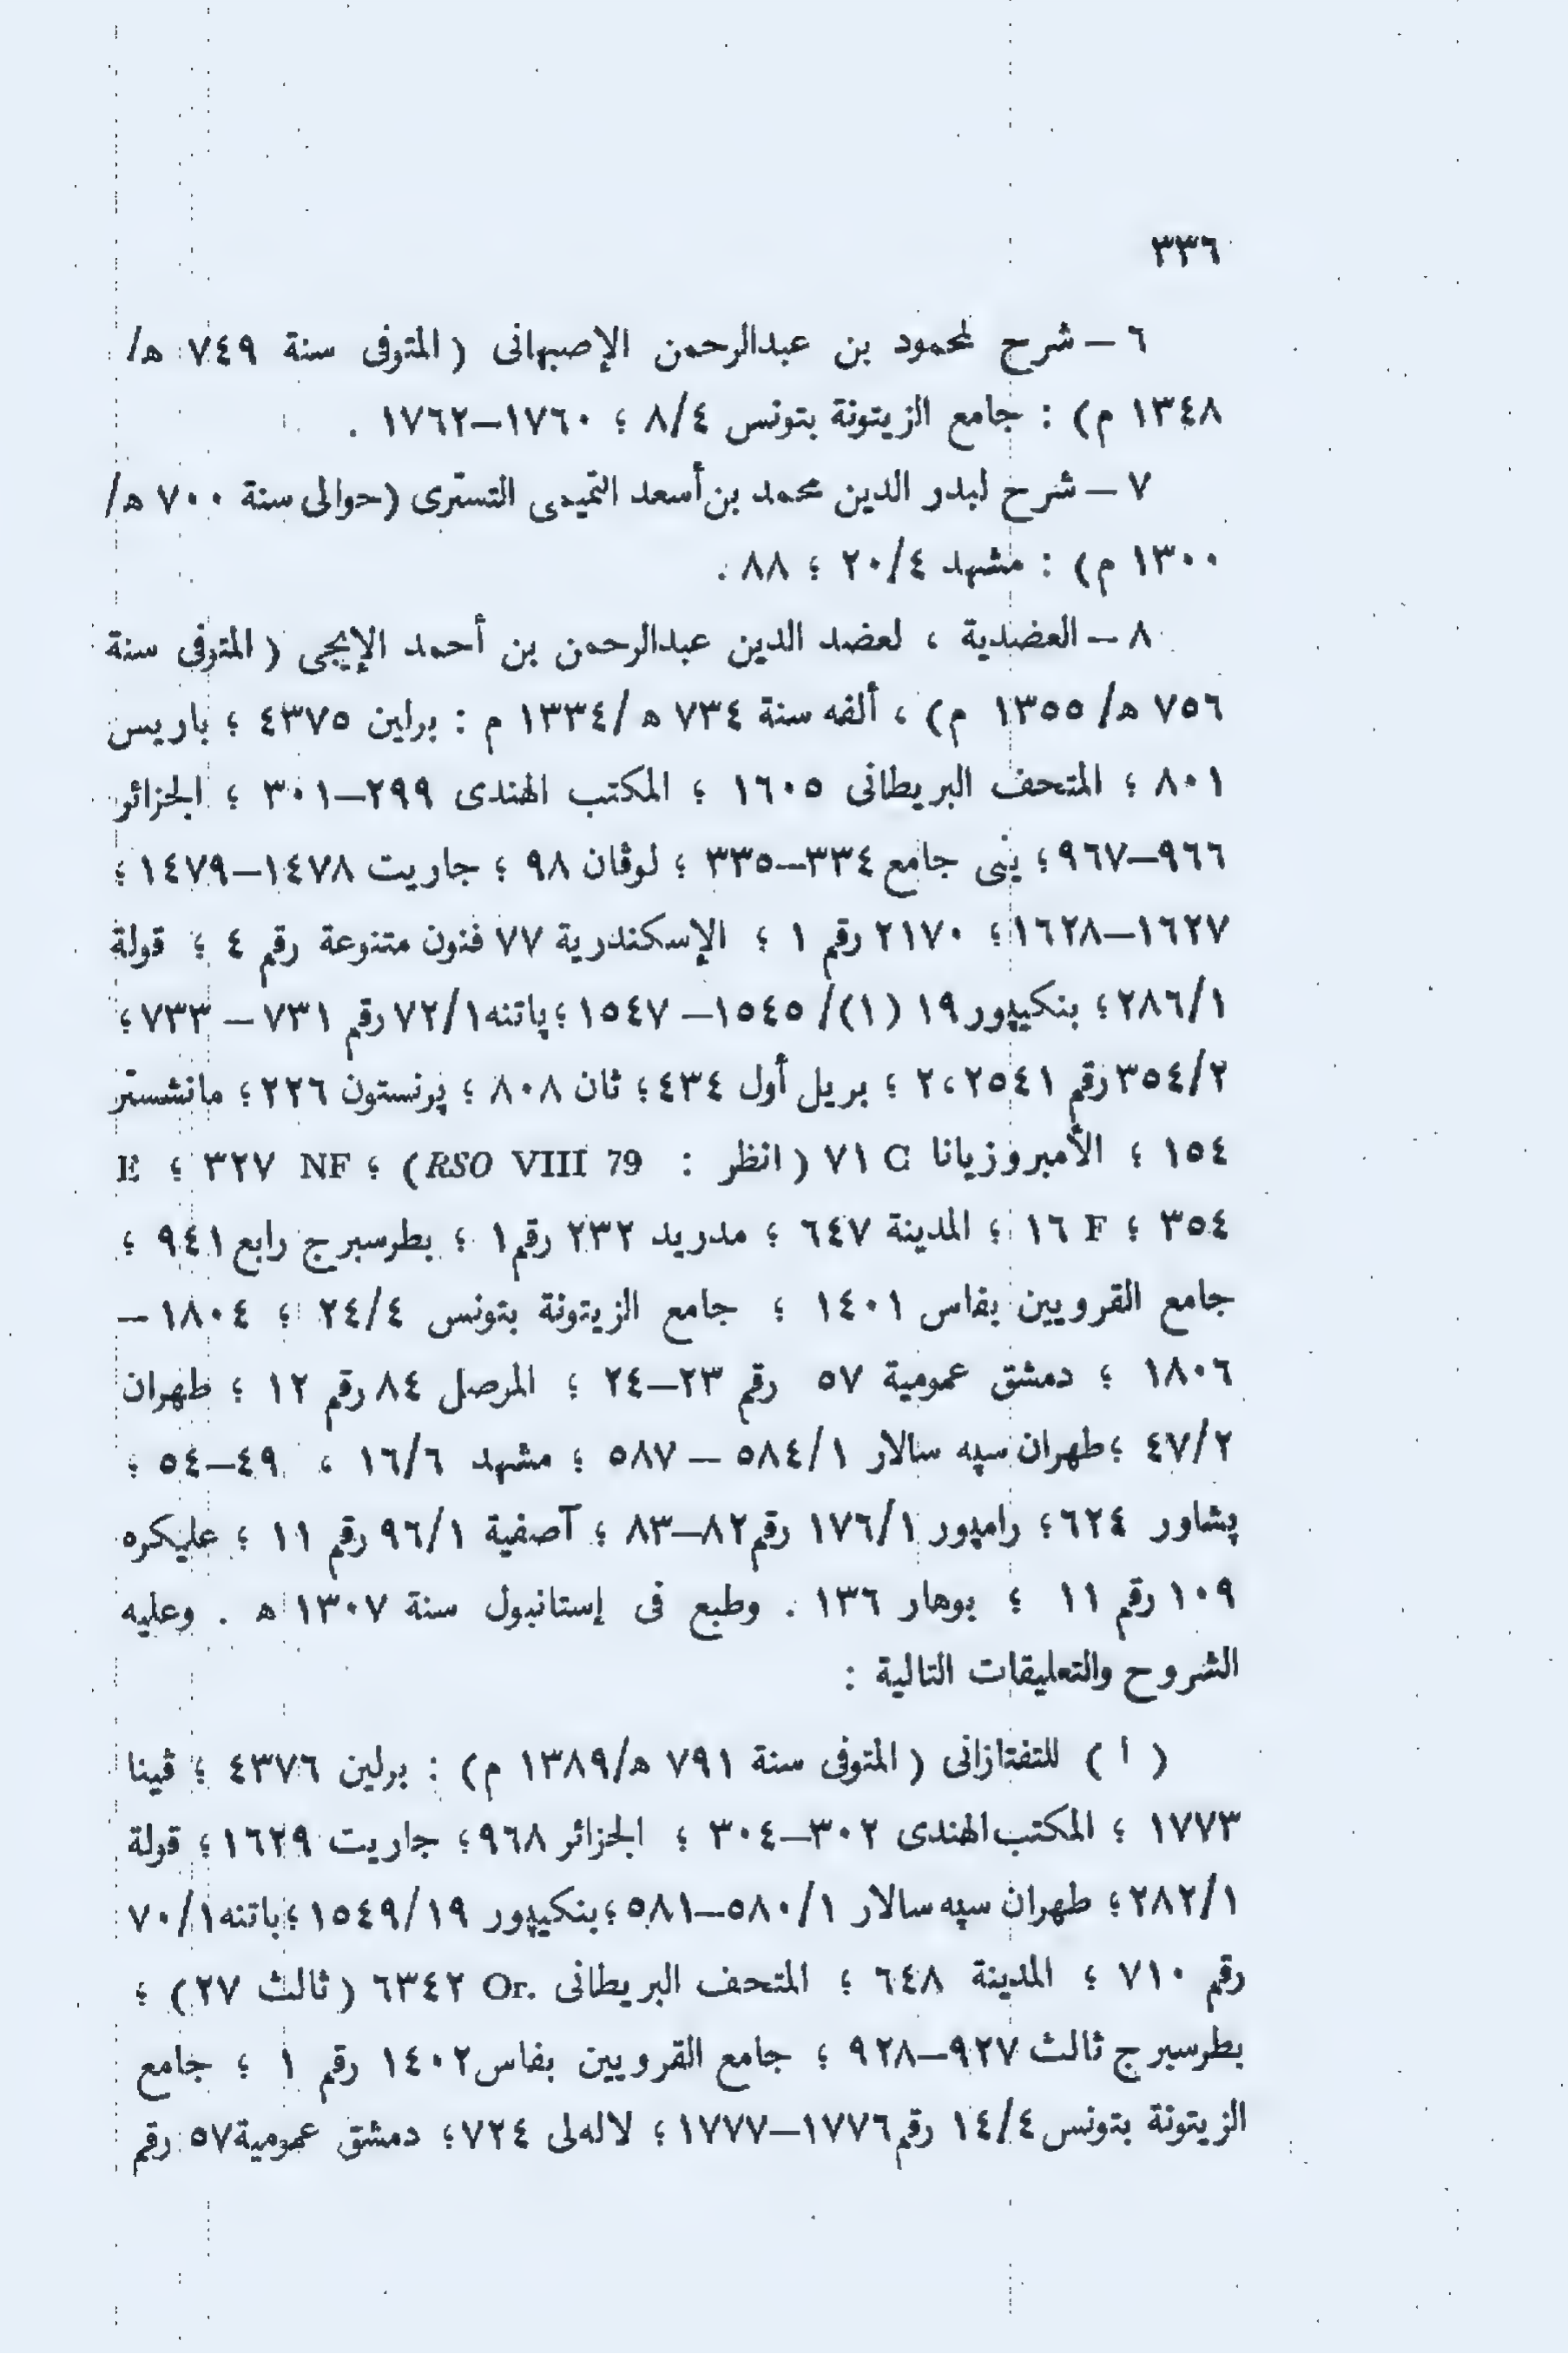 ٣٣٦
٦ – شرح لمحمود بن عبدالرحمن الإصبهانى ( المتوفى سنة ٧٤٩ ه/
١٣٤٨ م) : جامع الزيتونة بتونس ٨/٤ ؛ ١٧٦٠–١٧٦٢ .
٧ – شرح لبدر الدين محمد بن أسعد التميمى التسترى (حوالى سنة ٧٠٠ ه/
١٣٠٠ م) : مشهد ٢٠/٤ ؛ ٨٨ .
٨ – العضدية ، لعضد الدين عبدالرحمن بن أحمد الإيجى ( المتوفى سنة
٧٥٦ ه/ ١٣٥٥ م) ، ألفه سنة ٧٣٤ ه/١٣٣٤ م : برلين ٤٣٧٥ ؛ باريس
٨٠١ ؛ المتحف البريطانى ١٦٠٥ ؛ المكتب الهندى ٢٩٩–٣٠١ ؛ الجزائر
٩٦٦–٩٦٧ ؛ ينى جامع ٣٣٤–٣٣٥ ؛ لوڤان ٩٨ ؛ جاريت ١٤٧٨–١٤٧٩ ؛
١٦٢٧–١٦٢٨ ؛ ٢١٧٠ رقم ١ ؛ الإسكندرية ٧٧ فنون متنوعة رقم ٤ ؛ قولة
٢٨٦/١ ؛ بنكيپور ١٩ (١)/ ١٥٤٥– ١٥٤٧ ؛ پاتنه ٧٢/١ رقم ٧٣١ – ٧٣٣ ؛
٣٥٤/٢ رقم ٢،٢٥٤١ ؛ بريل أول ٤٣٤ ؛ ثان ٨٠٨ ؛ پرنستون ٢٢٦ ؛ مانشستر
١٥٤ ؛ الأمبروزيانا C ٧١ ( انظر : RSO VIII 79) ؛ NF ٣٢٧ ؛ E
٣٥٤ ؛ F ١٦ ؛ المدينة ٦٤٧ ؛ مدريد ٢٣٢ رقم ١ ؛ بطرسبرج رابع ٩٤١ ؛
جامع القرويين بفاس ١٤٠١ ؛ جامع الزيتونة بتونس ٢٤/٤ ؛ ١٨٠٤ –
١٨٠٦ ؛ دمشق عمومية ٥٧ رقم ٢٣–٢٤ ؛ الموصل ٨٤ رقم ١٢ ؛ طهران
٤٧/٢ ؛ طهران سپه سالار ٥٨٤/١ – ٥٨٧ ؛ مشهد ١٦/٦ ، ٤٩–٥٤ ؛
پشاور ٦٢٤ ؛ رامپور ١٧٦/١ رقم ٨٢–٨٣ ؛ آصفية ٩٦/١ رقم ١١ ؛ عليكره
١٠٩ رقم ١١ ؛ بوهار ١٣٦ . وطبع فى إستانبول سنة ١٣٠٧ ه . وعليه
الشروح والتعليقات التالية :
( ا ) للتفتازانى ( المتوفى سنة ٧٩١ ه/١٣٨٩ م) : برلين ٤٣٧٦ ؛ ڤينا
١٧٧٣ ؛ المكتب الهندى ٣٠٢–٣٠٤ ؛ الجزائر ٩٦٨ ؛ جاريت ١٦٢٩ ؛ قولة
٢٨٢/١ ؛ طهران سپه سالار ٥٨٠/١–٥٨١ ؛ بنكيپور ١٥٤٩/١٩ ؛ باتنه ٧٠/١
رقم ٧١٠ ؛ المدينة ٦٤٨ ؛ المتحف البريطانى .Or ٦٣٤٢ (ثالث ٢٧) ؛
بطرسبرج ثالث ٩٢٧–٩٢٨ ؛ جامع القرويين بفاس ١٤٠٢ رقم ١ ؛ جامع
الزيتونة بتونس ١٤/٤ رقم ١٧٧٦–١٧٧٧ ؛ لاله‌لى ٧٢٤ ؛ دمشق عمومية ٥٧ رقم